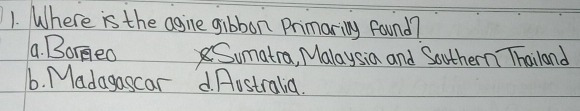 1. Where is the agile gibbon primarily found?
a. Borneo c. Sumatra, Malaysia and Southern Thailand
b. Madagascar d. Australia.